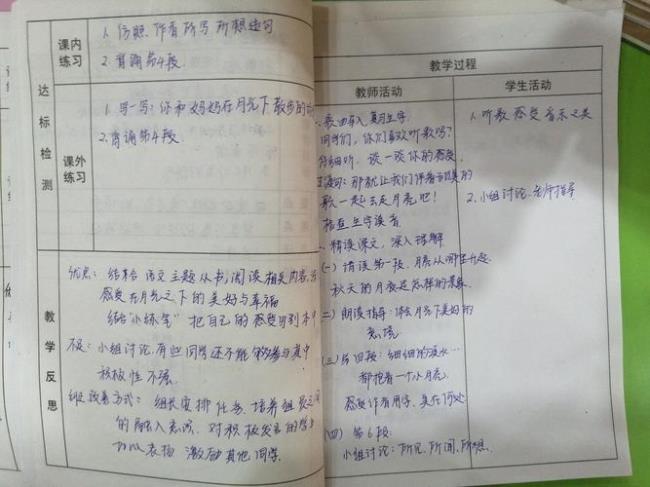 达标检测
课内练习
1. 仿照作者所写所想造句
2. 背诵第4段
课外练习
1. 写一写:你和妈妈在月光下散步的
2. 背诵第4段
教学反思
优点:结合语文主题丛书,阅读相关内容,
感受在月光之下的美好与幸福
结合“小练笔”把自己的感受写到本中
不足:小组讨论,有些同学还不能够参与其中
积极性不强.
改善方式:组长安排任务,培养组员之间
的融入意识,对积极发言的
加以表扬 激励其他同学.
教学过程
教师活动
学生活动
歌曲导入
同学们,你们喜欢听歌吗?
仔细听,谈一谈你的感受,
那就让我们伴着甜美的
歌一起去走月亮吧!
检查生字读音
精读课文,深入理解
(一) 请读第一段,月亮从哪里升起,
秋天的月夜是怎样的景象
二) 朗读指导:体会月光下美好的
意境
(三) 细细的溪水…
都抱着一个小月亮.
感受作者用字,美在何处
(四) 第6段
小组讨论:所见,所闻,所想.
1. 听歌感受音乐之美
2. 小组讨论,老师指导